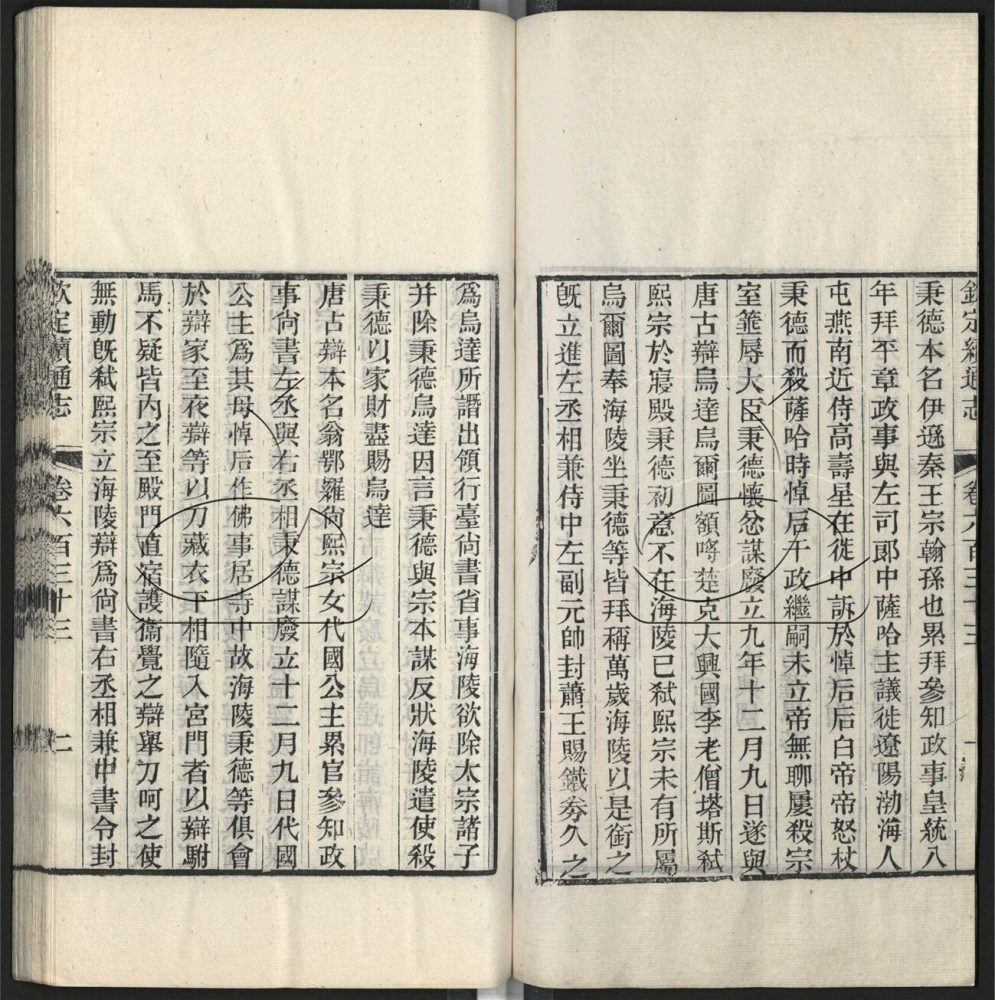 欽定續通志
卷六百三十三
一
秉德本名伊遜秦王宗翰孫也累拜參知政事皇統八
年拜平章政事與左司郎中薩哈主議徙遼陽渤海人
屯燕南近侍高壽星在徙中訴於悼后后白帝帝怒杖
秉德而殺薩哈時悼后干政繼嗣未立帝無聊屢殺宗
室箠辱大臣秉德懷忿謀廢立九年十二月九日遂與
唐古辯烏達烏爾圖額哷楚克大興國李老僧塔斯弒
熙宗於寢殿秉德初意不在海陵已弒熙宗未有所屬
烏爾圖奉海陵坐秉德等皆拜稱萬歲海陵以是銜之
旣立進左丞相兼侍中左副元帥封蕭王賜鐵券久之
爲烏達所譖出領行臺尙書省事海陵欲除太宗諸子
并除秉德烏達因言秉德與宗本謀反狀海陵遣使殺
秉德以家財盡賜烏達
唐古辯本名翁鄂羅尙熙宗女代國公主累官參知政
事尙書左丞與右丞相秉德謀廢立十二月九日代國
公主爲其母悼后作佛事居寺中故海陵秉德等俱會
於辯家至夜辯等以刀藏衣下相隨入宮門者以辯駙
馬不疑皆內之至殿門直宿護衞覺之辯舉刀呵之使
無動旣弒熙宗立海陵辯爲尙書右丞相兼中書令封
欽定續通志
卷六百三十三
二